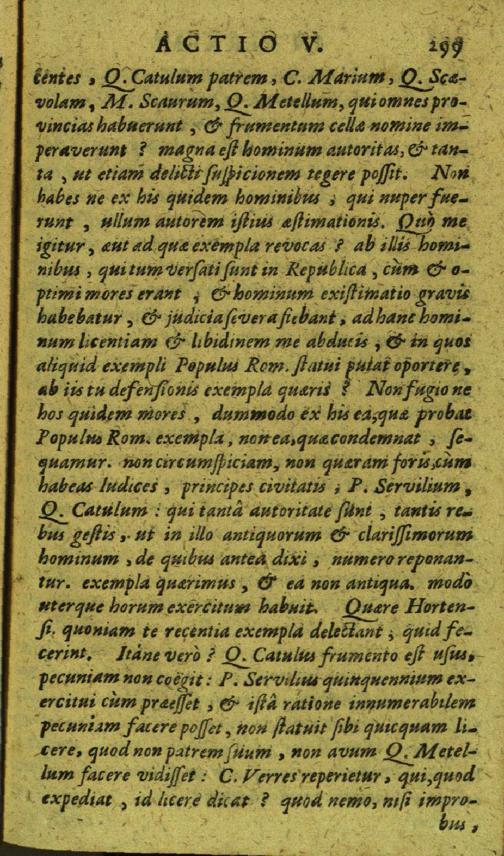 ACTIO V. 299
centes, Q. Catulum patrem, C. Marium, Q. Scæ-
volam, M. Scaurum, Q. Metellum, qui omnes pro-
vincias habuerunt, & frumentum cellæ nomine im-
peraverunt? magna est hominum autoritas, & tan-
ta, ut etiam delicti suspicionem tegere possit. Non
habes ne ex his quidem hominibus, qui nuper fue-
runt, ullum autorem istius æstimationis. Quò me
igitur, aut ad quæ exempla revocas? ab illis homi-
nibus, qui tum versati sunt in Republica, cùm & o-
ptimi mores erant, & hominum existimatio gravis
habebatur, & judicia severa fiebant, ad hanc homi-
num licentiam & libidinem me abducis, & in quos
aliquid exempli Populus Rom. statui putat oportere,
ab iis tu defensionis exempla quæris? Non fugio ne
hos quidem mores, dummodo ex his ea, quæ probat
Populus Rom. exempla, non ea, quæ condemnat, se-
quamur. non circumspiciam, non quæram foris, cùm
habeas Iudices, principes civitatis, P. Servilium,
Q. Catulum: qui tantâ autoritate sunt, tantis re-
bus gestis, ut in illo antiquorum & clarissimorum
hominum, de quibus antea dixi, numero reponan-
tur. exempla quærimus, & ea non antiqua. modò
uterque horum exercitum habuit. Quære Horten-
si, quoniam te recentia exempla delectant, quid fe-
cerint. Itáne verò? Q. Catulus frumento est usus,
pecuniam non coëgit: P. Servilius quinquennium ex-
ercitui cùm præesset, & istâ ratione innumerabilem
pecuniam facere posset, non statuit sibi quicquam li-
cere, quod non patrem suum, non avum Q. Metel-
lum facere vidisset: C. Verres reperietur, qui, quod
expediat, id licere dicat? quod nemo, nisi impro-
bus,